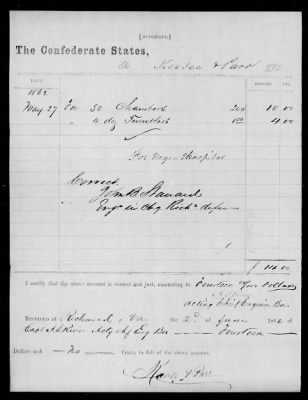 (DUPLICATE)
The Confederate States,
To Keesee & Parr Dr.
DATE.
1862
May 27 For 50 Chambers 20¢ 10.00
" 4 dz Tumblers 1.00 4.00
For Negro Hospital
Correct
John B. Stanard
Engr in Chg Richd defences
$14.00
I certify that the above account is correct and just, amounting to Fourteen Dollars
Acting Chief Engineer Bu
RECEIVED at Richmond, Va 2d of June 1862 of
Capt Actg Chf Eng Bu Fourteen
Dollars and no Cents, in full of the above account.
Keesee & Parr